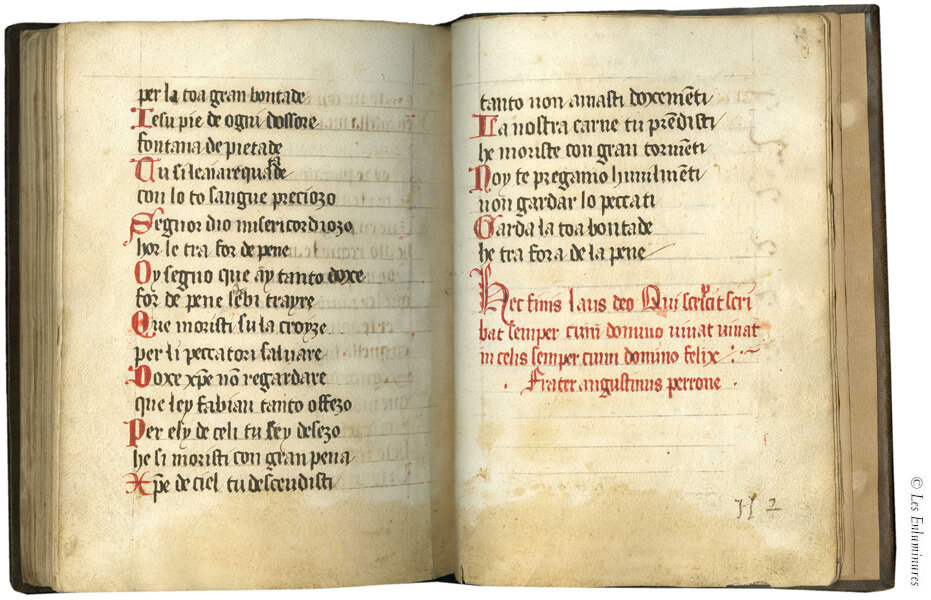 per la toa gran bontade
Iesu pie de ogni dossore
fontana de pietade
Tu si leaiarequade
con lo to sangue preciozo
Segnor dio misericordiozo
hor le tra for de pene
Oy segno que aỹ tanto doxe
for de pene sebi trayre
Que moristi su la croyze
per li peccatori saluare
Doxe xp̃e nō regardare
que ley fabian tanto offezo
Per esy de celi tu sey desezo
he si moristi con gran pena
Xp̃e de ciel tu descendisti
tanto non amasti doxemēti
La nostra carne tu prēdisti
he moriste con gran tormēti
Noy te pregamo humilmēti
non gardar lo peccati
Garda la toa bontade
he tra fora de la pene
Hec finis laus deo Qui scripcit scri
bat semper cum domino uiuat uiuat
in celis semper cum domino felix
Frater angustinus perrone
152
© Les Enluminures